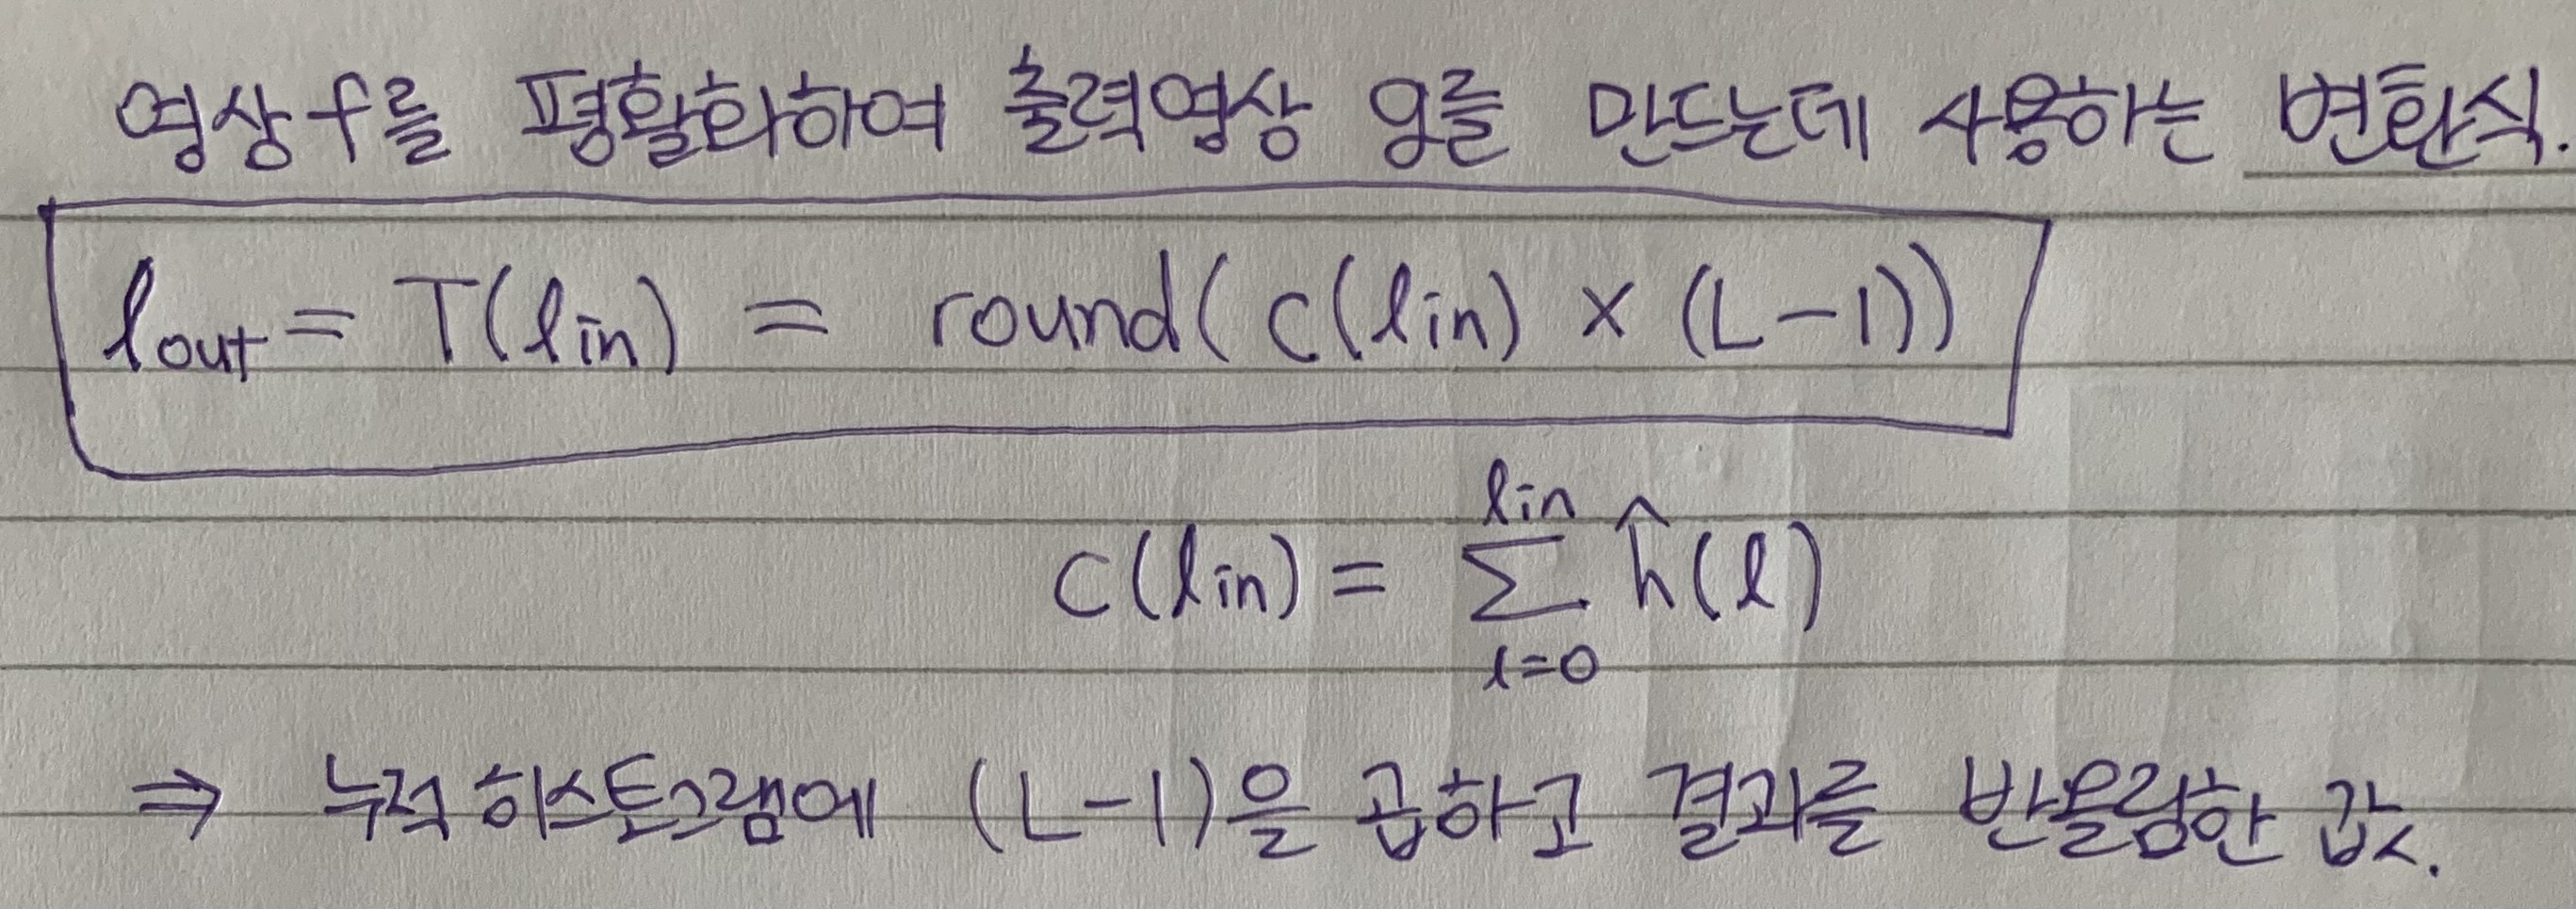 영상 f를 평활화하여 출력영상 g를 만드는데 사용하는 변환식.
lout = T(lin) = round( c(lin) × (L-1))
c(lin) = \sum_{l=0}^{lin} ĥ(l)
⇒ 누적 히스토그램에 (L-1)을 곱하고 결과를 반올림한 값.